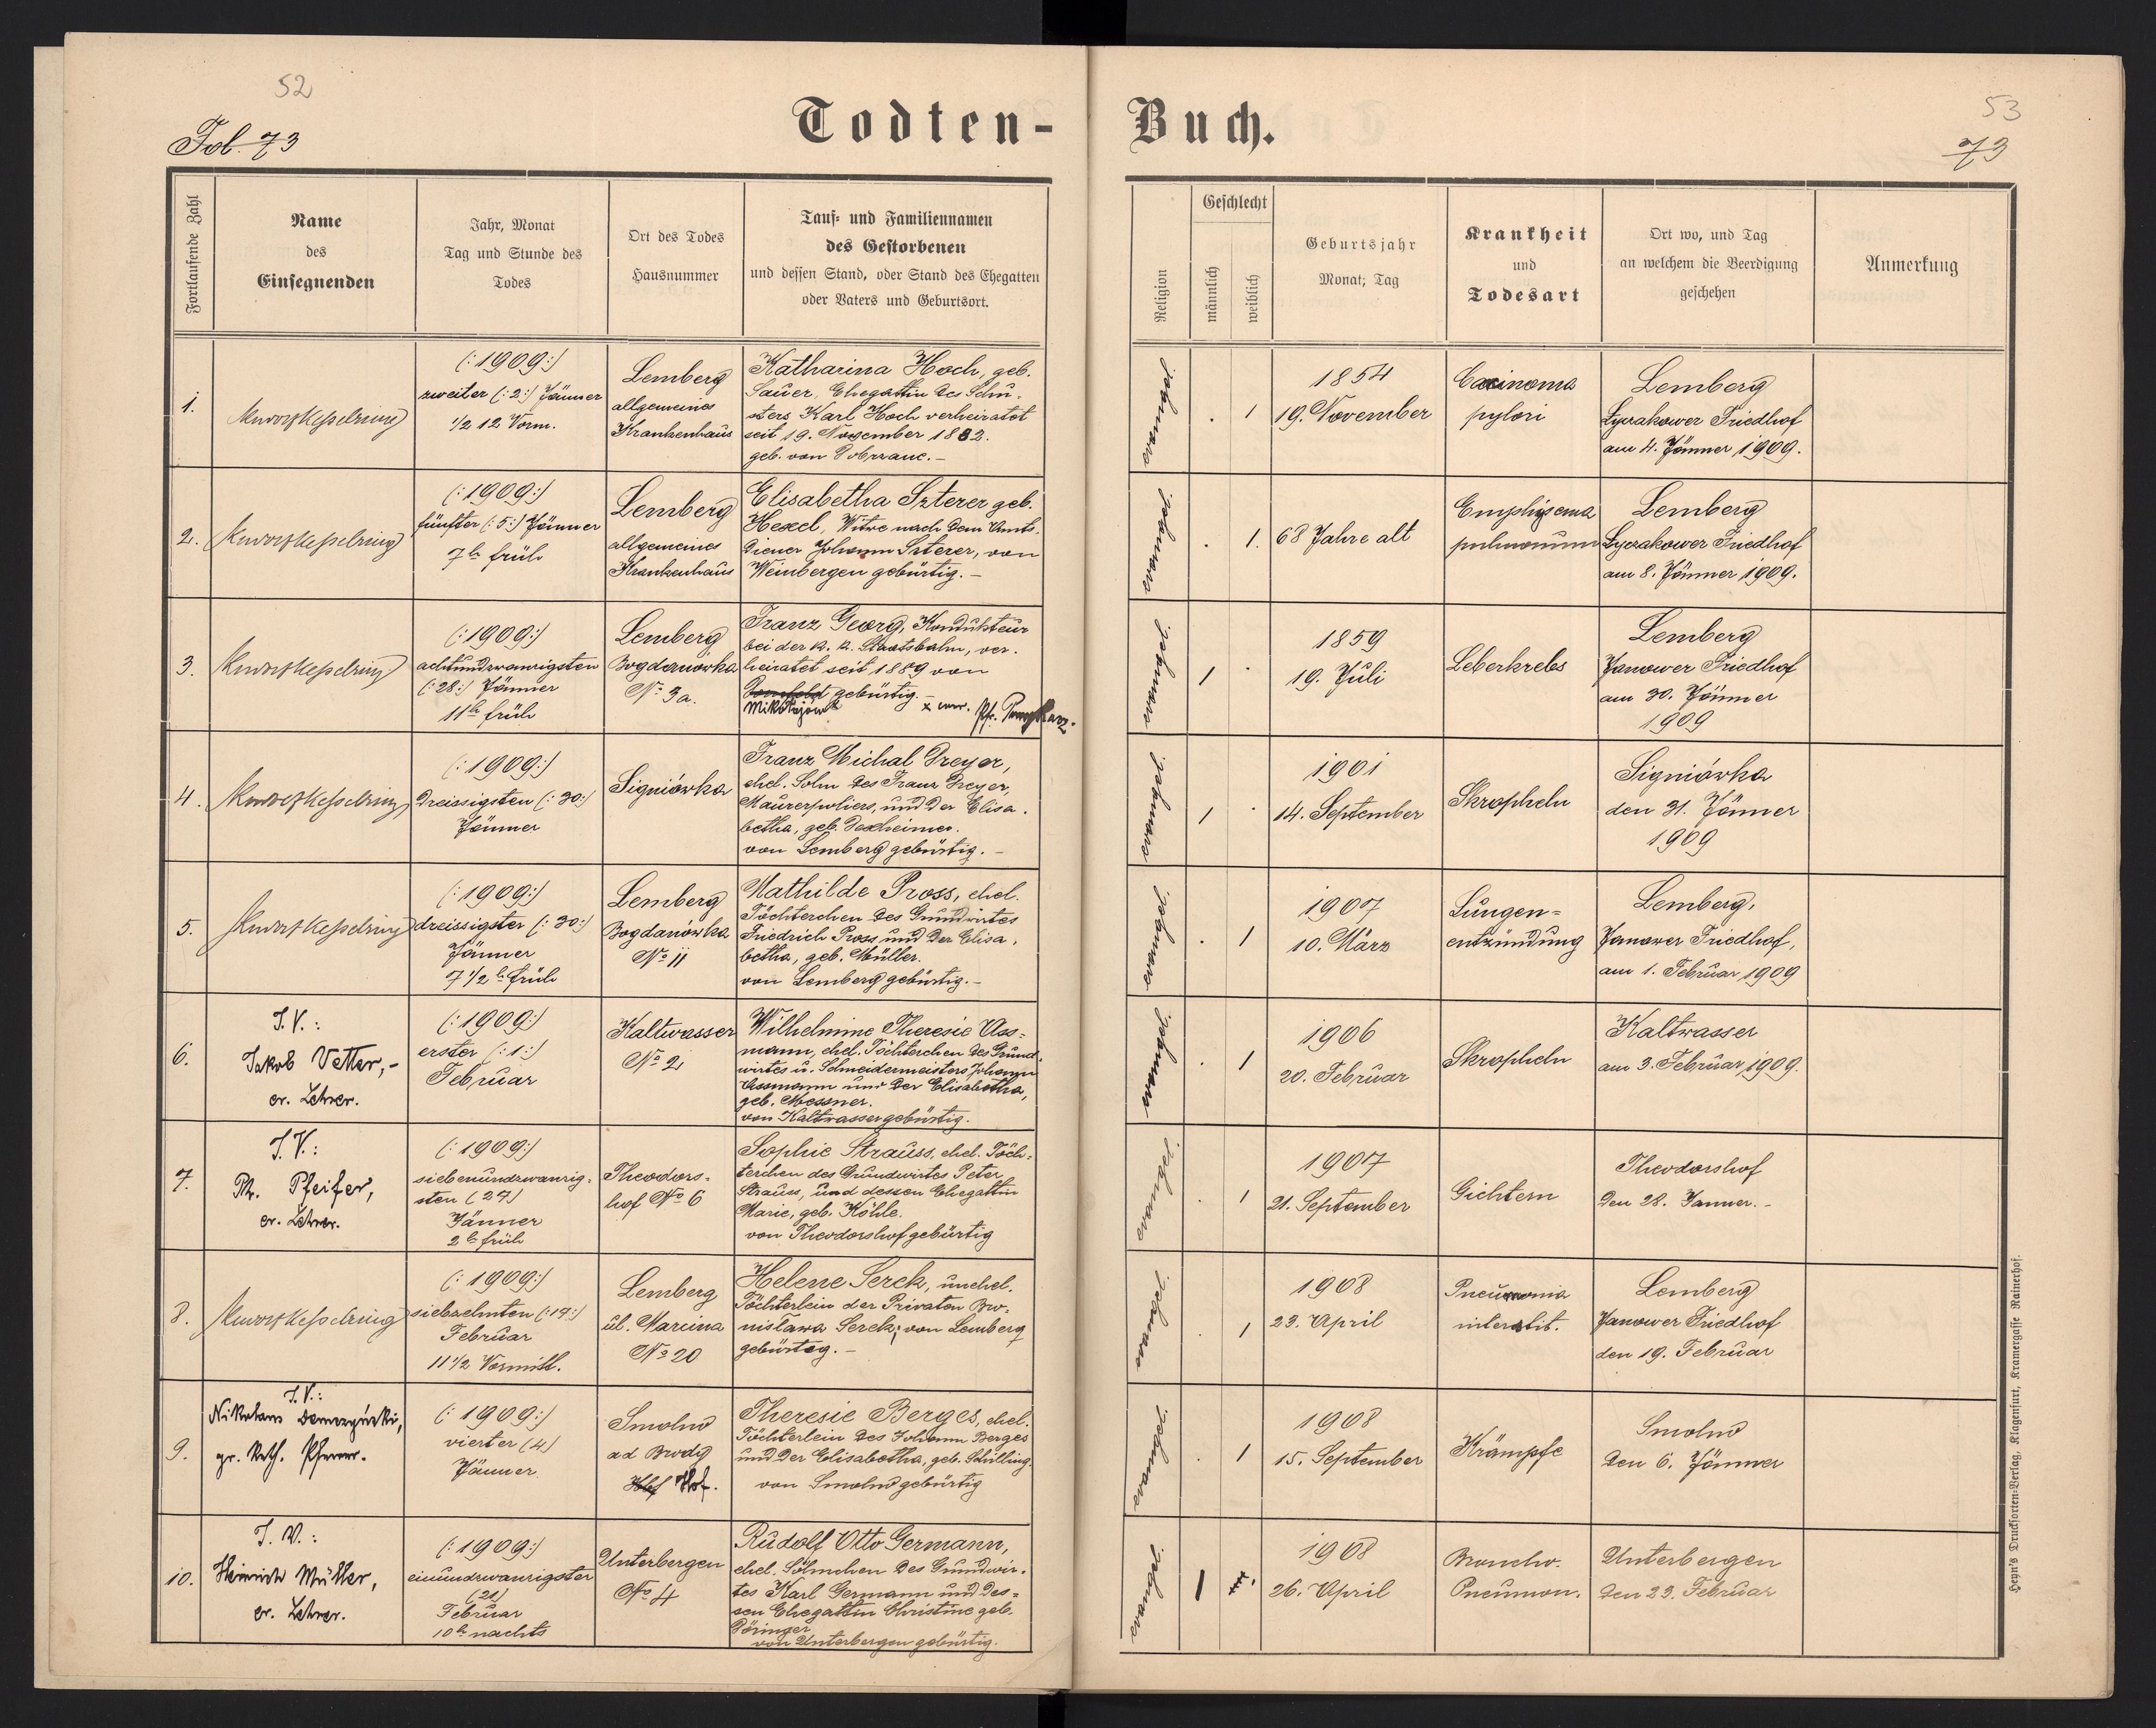 52
Fol. 73
Todten-
Fortlaufende Zahl
Name
des
Einsegnenden
Jahr, Monat
Tag und Stunde des
Todes
Ort des Todes
Hausnummer
Tauf- und Familiennamen
des Gestorbenen
und dessen Stand, oder Stand des Ehegatten
oder Vaters und Geburtsort.
1.
(:1909:)
zweiter (:2:) Jänner
1/2 12 Vorm.
Lemberg
allgemeines
Krankenhaus
Katharina Hoch, geb.
Sauer, Ehegattin des Schu-
sters Karl Hoch verheiratet
seit 19. November 1882.
geb. von Dobrzanic.-
2.
(:1909:)
fünfter (:5:) Jänner
7h früh
Lemberg
allgemeines
Krankenhaus
Elisabetha Szterer geb.
Hexel, Witwe nach dem Amts-
diener Johann Szterer, von
Weinbergen gebürtig.-
3.
(:1909:)
achtundzwanzigsten
(:28:) Jänner
11h früh
Lemberg
Bogdanówka
No 3a.
Franz Georg, Kondukteur
bei der k. k. Staatsbahn, ver-
heiratet seit 1889 von
Dornfeld gebürtig.-
Mikołajów
4.
(:1909:)
Dreissigsten (:30:)
Jänner
Signiówka
Franz Michal Dreyer,
ehel. Sohn des Franz Dreyer,
Maurerpoliers, und der Elisa-
betha, geb. Dexheimer.
von Lemberg gebürtig.-
5.
(:1909:)
dreissigster (:30:)
Jänner
7 1/2 h früh
Lemberg
Bogdanówka
No 11
Mathilde Pross, ehel.
Töchterchen des Grundwirtes
Friedrich Pross und der Elisa-
betha, geb. Müller.
von Lemberg gebürtig.-
6.
I.V.:
Jakob Vetter,-
ev. Lehrer.
(:1909:)
erster (:1:)
Februar
Kaltwasser
No 2
Wilhelmine Theresie Ass-
mann, ehel. Töchterchen des Grund-
wirtes u. Schneidermeisters Johann
Assmann und der Elisabetha,
geb. Messner.
von Kaltwasser gebürtig.
7.
I.V.:
Ph. Pfeifer,
ev. Lehrer.
(:1909:)
siebenundzwanzig-
sten (27)
Jänner
2h früh
Theodors-
hof No 6
Sophie Strauss, ehel. Töch-
terchen des Grundwirtes Peter
Strauss, und dessen Ehegattin
Marie, geb. Köhle.
von Theodorshof gebürtig
8.
(:1909:)
siebzehnten (:17:)
Februar
11 1/2 Vormitt.
Lemberg
ul. Marcina
No 20
Helene Serek, unehel.
Töchterlein der Privaten Bro-
nisława Serek, von Lemberg
gebürtig.-
9.
I.V.:
gr. kath. Pfarrer.
(:1909:)
vierter (4)
Jänner
Smolno
ad Brody
Hof.
Theresie Berges, ehel.
Töchterlein des Johann Berges
und der Elisabetha, geb. Schilling.
von Smolno gebürtig
10.
I. V.:
Heinrich Müller,
ev. Lehrer.
(:1909:)
einundzwanzigster
(21)
Februar
10h nachts
Unterbergen
No 4
Rudolf Otto Germann,
ehel. Söhnchen des Grundwir-
tes Karl Germann und des-
sen Ehegattin Christine geb.
Döringer
von Unterbergen gebürtig.
53
73
Buch.
Religion
Geschlecht
männlich
weiblich
Geburtsjahr
Monat; Tag
Krankheit
und
Todesart
Ort wo, und Tag
an welchem die Beerdigung
geschehen
Anmerkung
1
1854
19. November
Carcinoma
pylori
Lemberg
Lyczakower Friedhof
am 4. Jänner 1909.
1.
68 Jahre alt
Emphysema
pulmonum
Lemberg
Lyczakower Friedhof
am 8. Jänner 1909.
1
1859
19. Juli
Leberkrebs
Lemberg
Janower Friedhof
am 30. Jänner
1909
1
1901
14. September
Skropheln
Signiówka
den 31. Jänner
1909
1
1907
10. März
Lungen-
entzündung
Lemberg,
Janower Friedhof,
am 1. Februar 1909
1
1906
20. Februar
Skropheln
Kaltwasser
am 3. Februar 1909.
1
1907
21. September
Gichtern
Theodorshof
den 28. Janner.-
1
1908
23. April
Pneumonia
interstit.
Lemberg
Janower Friedhof
den 19. Februar
1
1908
15. September
Krämpfe
Smolno
den 6. Jänner
1
1908
26. April
Broncho-
Pneumon.
Unterbergen
den 23. Februar
Heyn's Drucksorten-Verlag, Klagenfurt, Kramergasse Rainerhof.